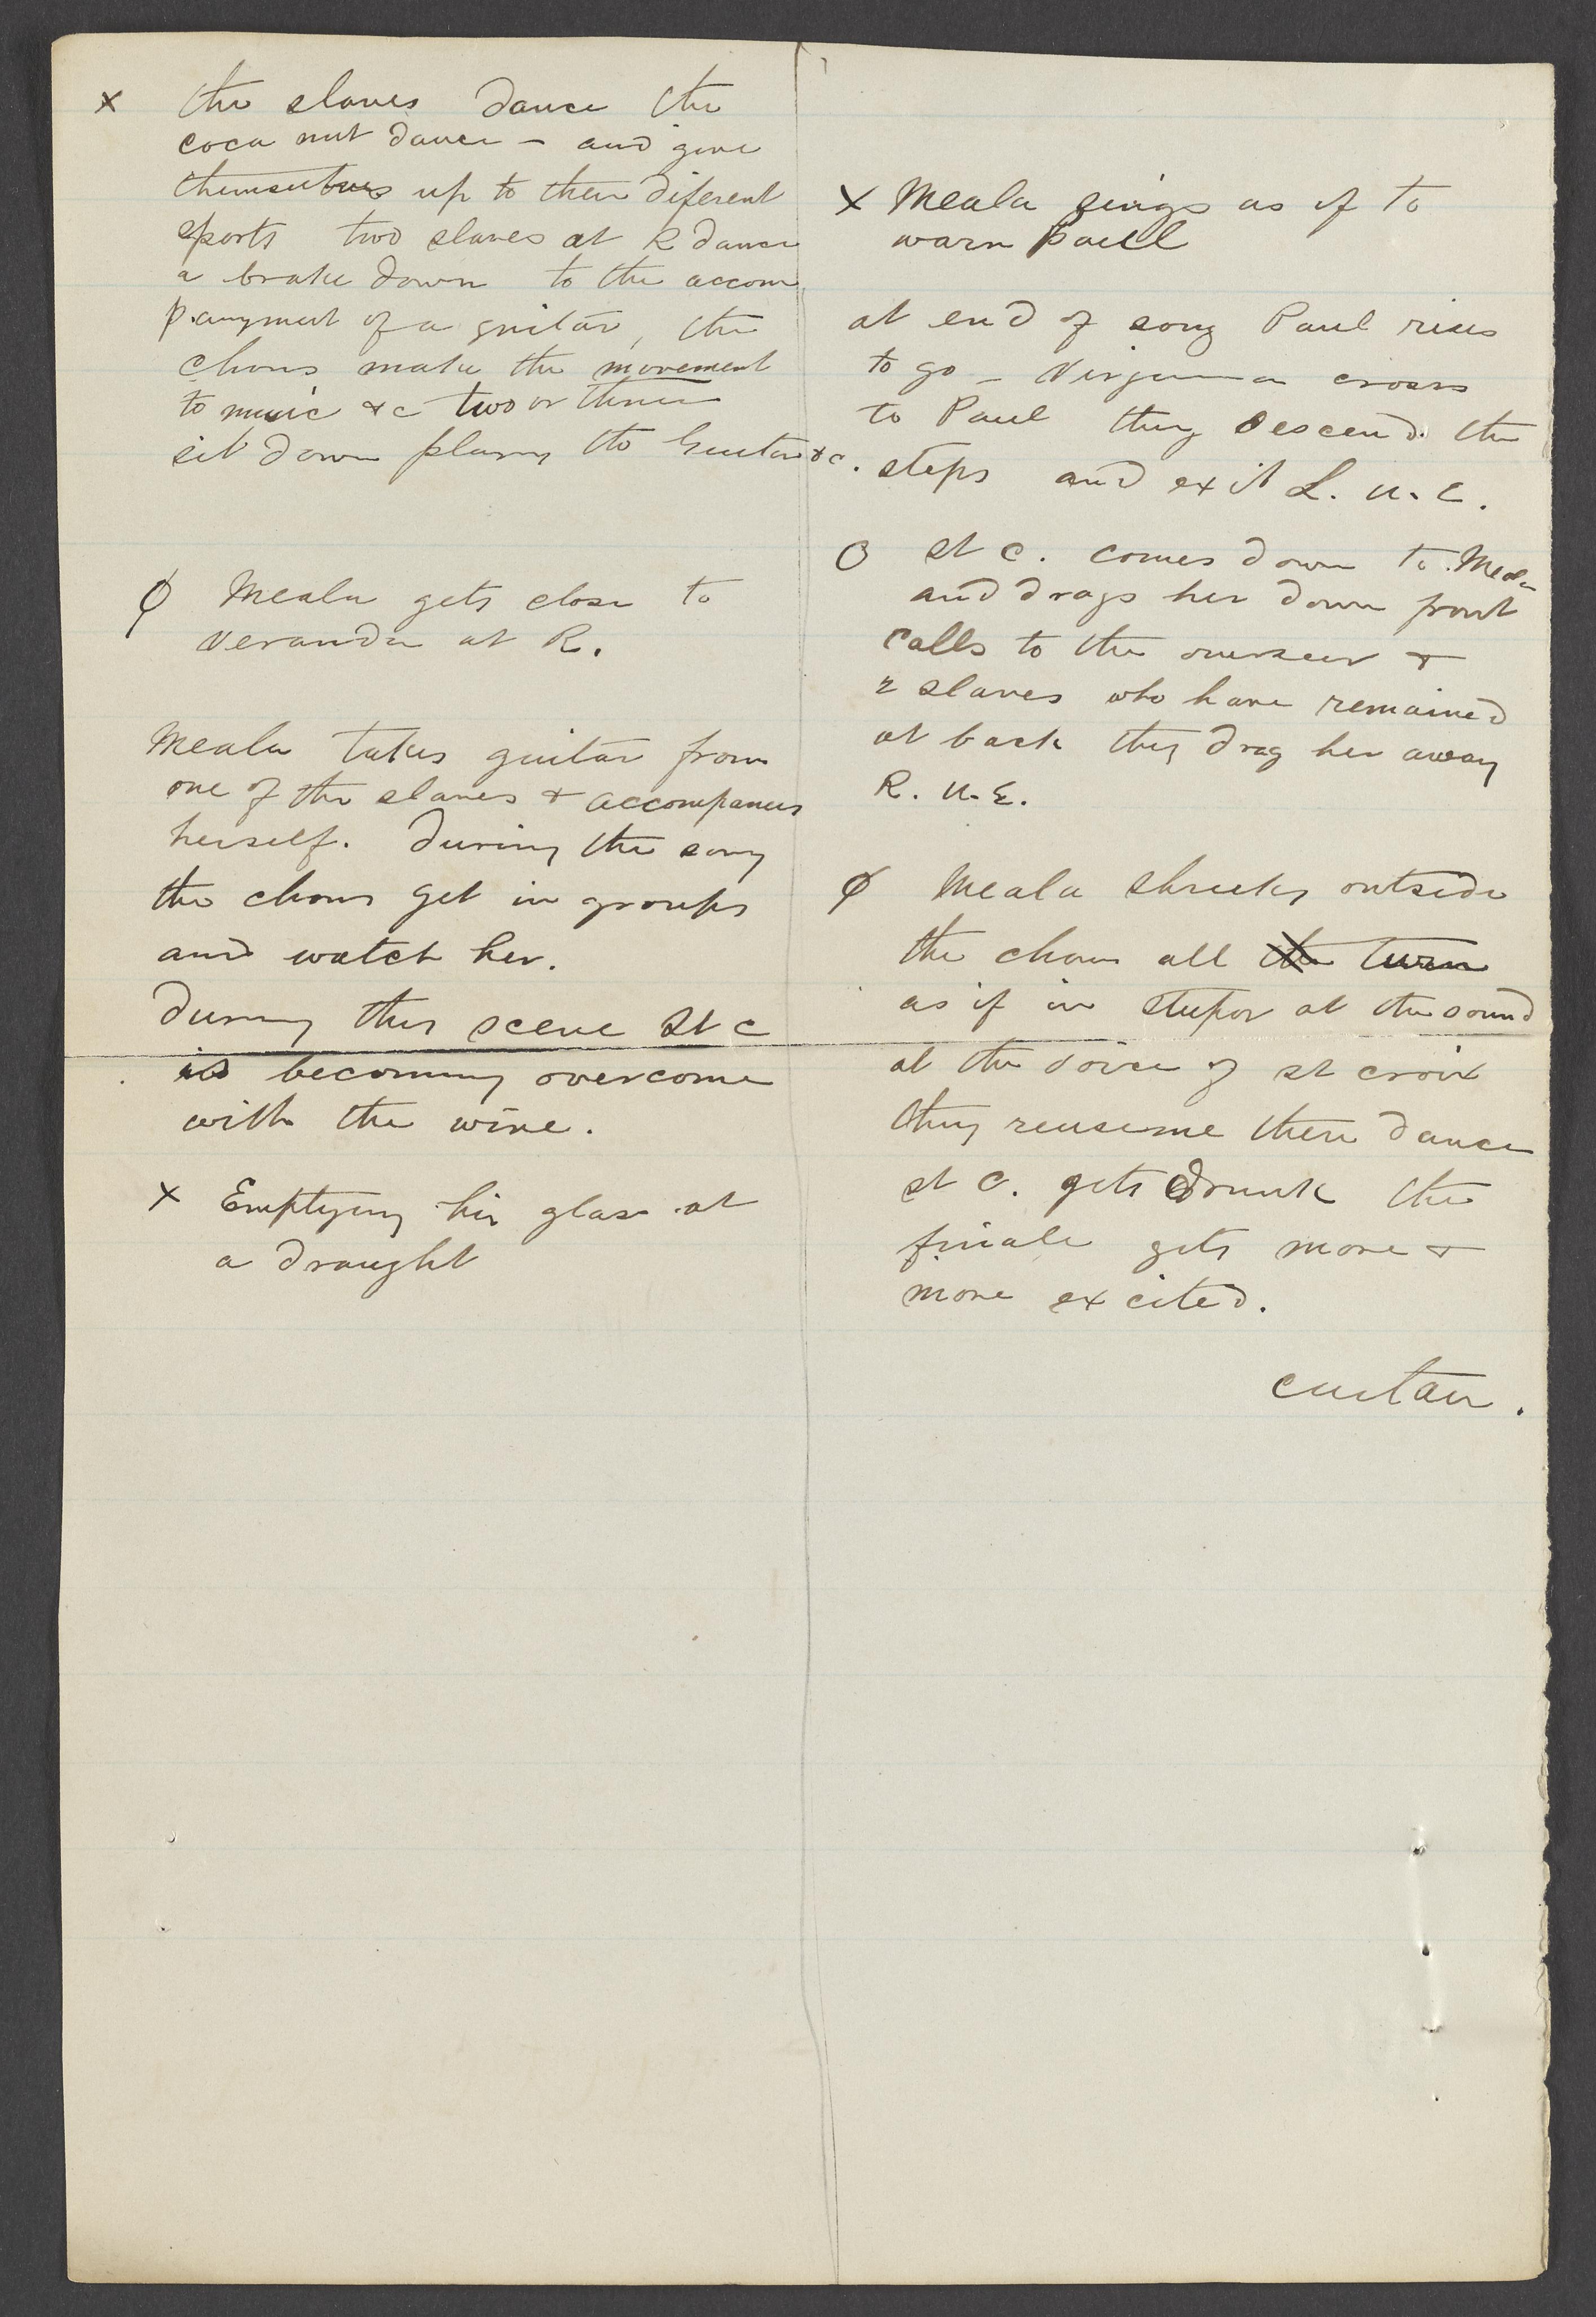 x the slaves dance the
coca nut dance - and give
themselves up to their diferent
sports two slaves at R dance
a brake down to the accom
panyment of a guitar, the
chorus make the movement
to music &c two or three
sit down playing the Guitar &c.
φ Meala gets close to
veranda at R.
Meala takes guitar from
one of the slaves & accompanies
herself. During the song
the chorus get in groups
and watch her.
During this scene St C
is becoming overcome
with the wine.
x Emptying his glass at
a draught
x Meala sings as if to
warn Paul
at end of song Paul rises
to go - Virginia crosses
to Paul they descend the
steps and exit L. U. E.
O St C. comes down to Meala
and drags her down front
calls to the overseer &
2 slaves who have remained
at back they drag her away
R. U. E.
φ Meala shrieks outside
the chorus all the turn
as if in stupor at the sound
at the voice of St Croix
they reuseme there dance
St C. gets drunk the
finale gets more &
more excited.
curtain.